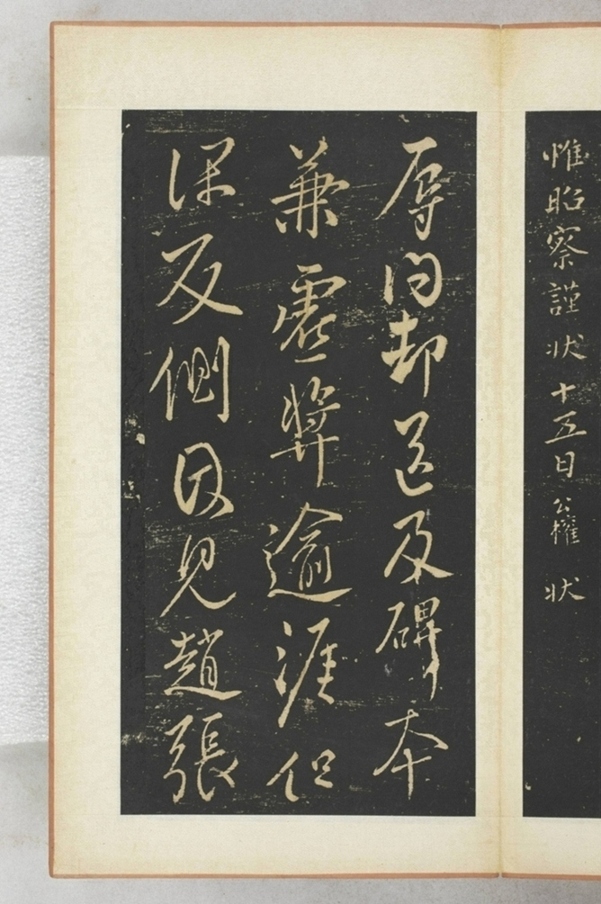 惟昭察謹狀十五日公權狀
辱問却送及碑本
兼虛弊逾涯但
深反側因見趙
張